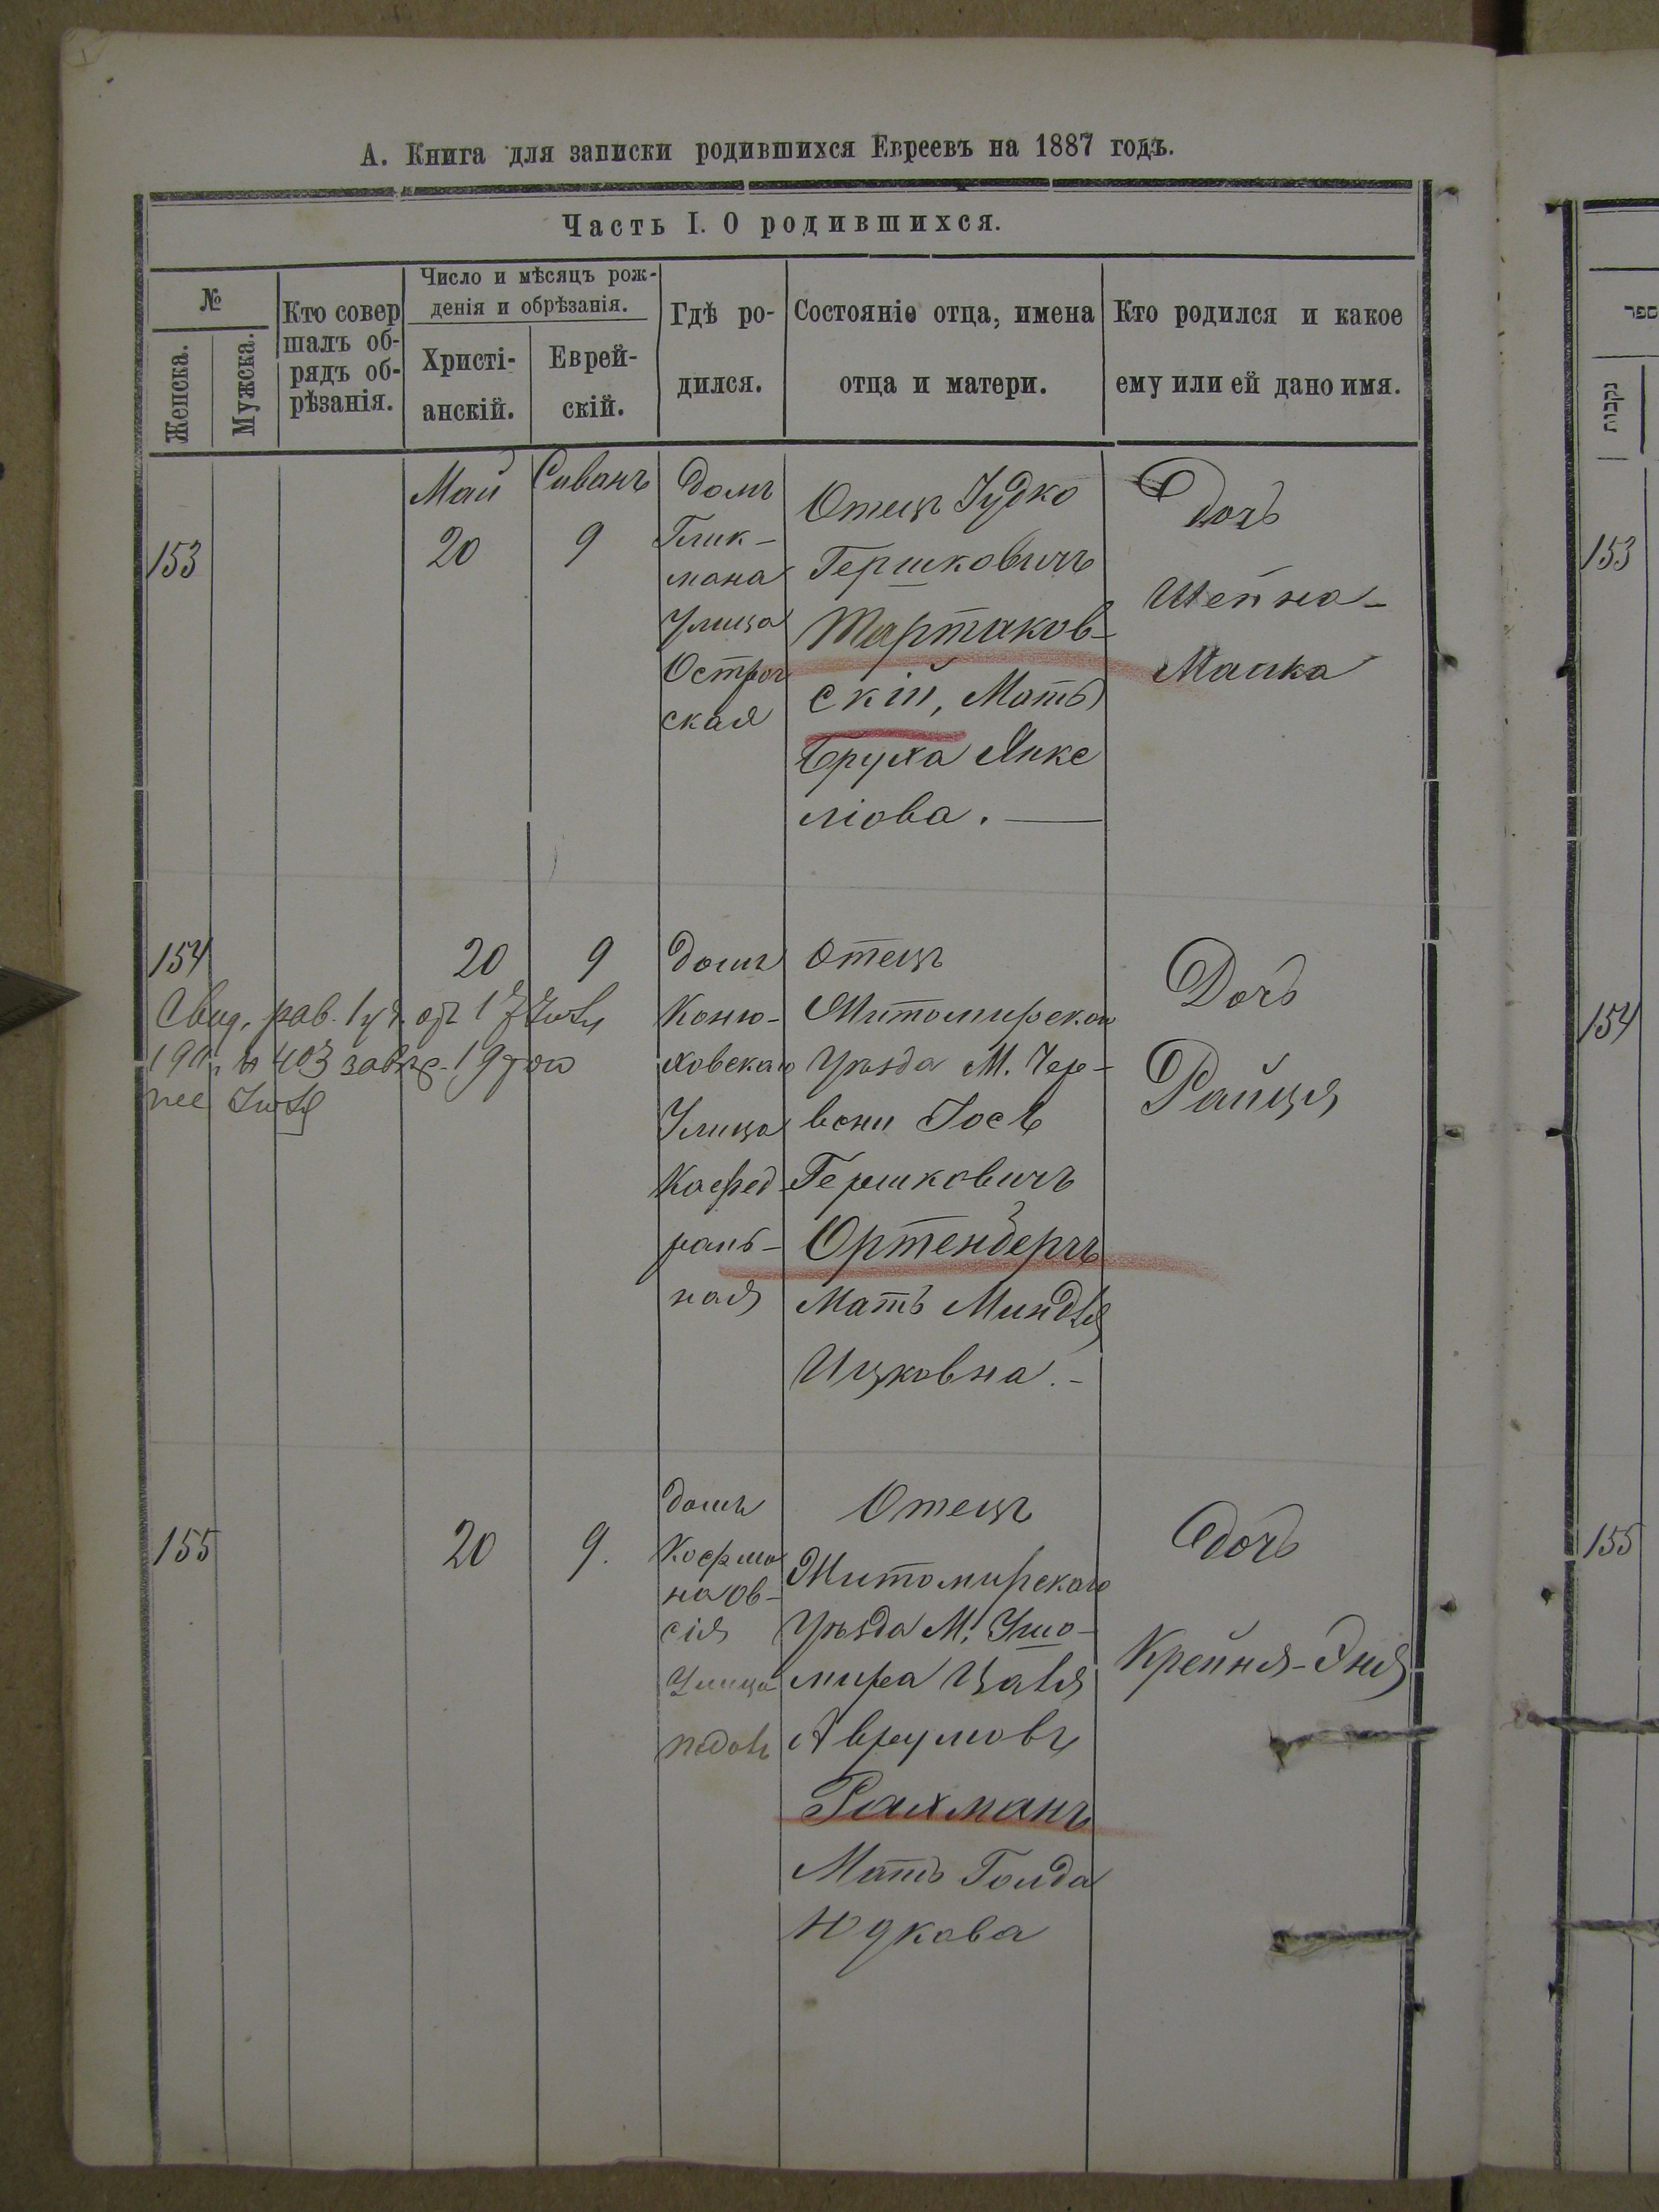 А. Книга для записки родившихся Евреевъ на 1887 годъ.
Часть I. О родившихся.
№
Женска.
Мужска.
Кто совер
шалъ об-
рядъ об-
рѣзанія.
Число и мѣсяцъ рож-
денія и обрѣзанія.
Христі-
анскій.
Еврей-
скій.
Гдѣ ро-
дился.
Состояніе отца, имена
отца и матери.
Кто родился и какое
ему или ей дано имя.
153
Май
20
Сиванъ
9
Домъ
Глик-
мана
Улица
Острог
ская
Отецъ Іудко
Гершковичъ
Тартаков-
скій, Мать
Бруха Янке
ліова.
Дочь
Шейна-
Малка
154
20
9
Домъ
Коню-
ховскаго
Улица
Кафед
раль-
ная
Отецъ
Житомирскаго
Уѣзда М. Чер-
вони Іось
Гершковичъ
Ортенбергъ
Мать Миндля
Ицковна.-
Дочь
Райця
155
20
9.
Домъ
на ов-
сія
Улица
Отецъ
Житомирскаго
Уѣзда М. Ушо-
мира
Аврумовъ
Рахманъ
Мать Голда
Юдкова
Дочь
Крейня-Эня
ספר
נקבות
153
154
155